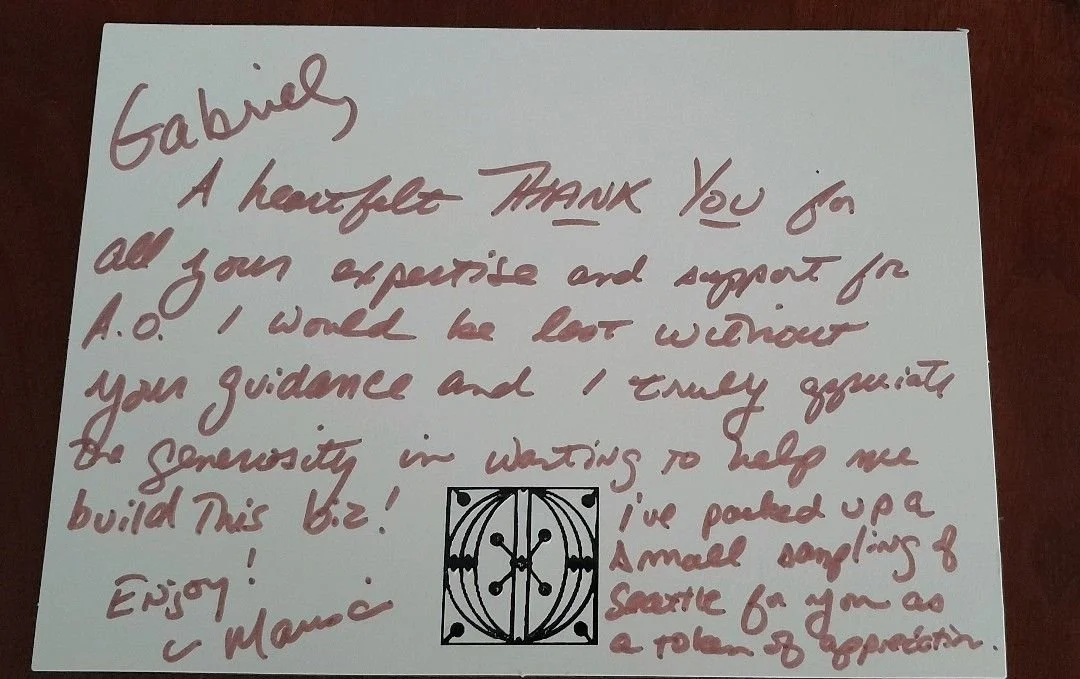 Gabriel,
A heartfelt THANK YOU for
all your expertise and support for
A.O. I would be lost without
your guidance and I truly appreciate
the generosity in wanting to help me
build This biz!
I've packed up a
small sampling of
Seattle for you as
a token of appreciation.
Enjoy!